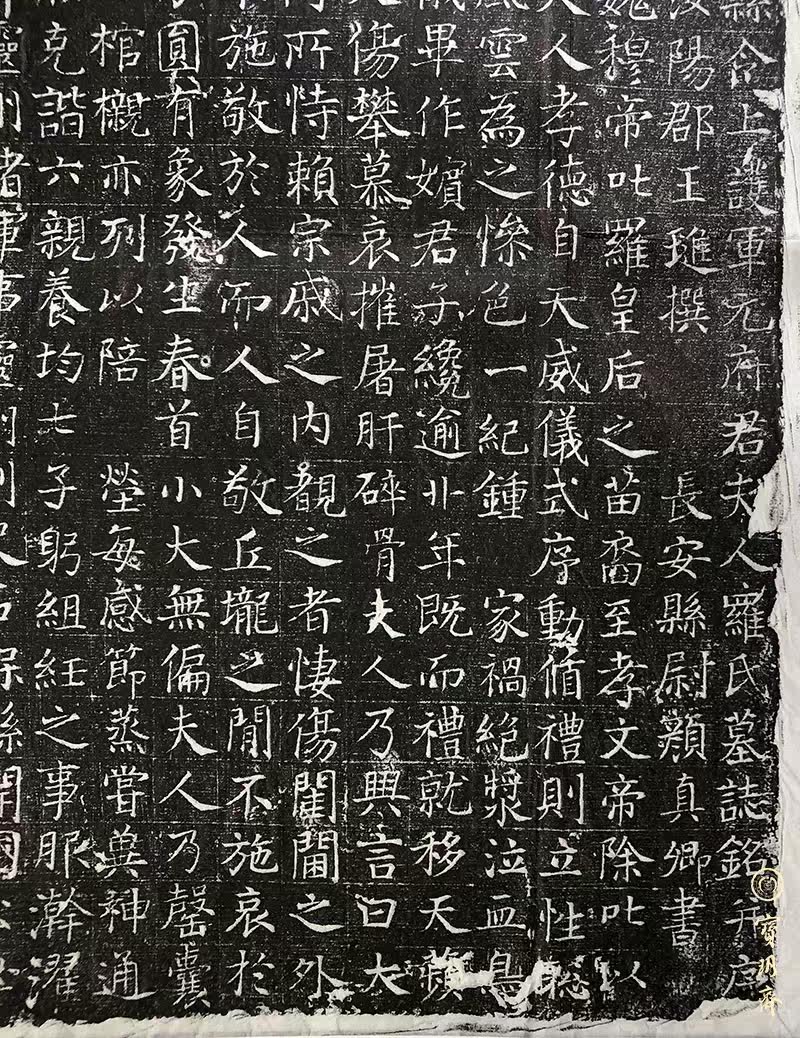 縣令上護軍元府君夫人羅氏墓誌銘并序
汝陽郡王璡撰 長安縣尉顏真卿書
魏穆帝叱羅皇后之苗裔至孝文帝除叱以
人孝德自天威儀式序動循禮則立性聰
風雲為之慘色一紀鍾 家禍絕漿泣血鳥
儀畢作嬪君子纔逾廿年既而禮就移天蘋
傷攀慕哀摧屠肝碎骨夫人乃興言曰大
何所恃賴宗戚之内覩之者悽傷閨閫之外
施敬於人而人自敬丘壠之閒不施哀於
圓有象發生春首小大無偏夫人乃罄囊
棺櫬亦列以陪 塋每感節蒸嘗奠神通
克諧六親養均七子躬組紝之事服澣濯
靈州諸軍事靈州刺史石保縣開國公
寶玥齋